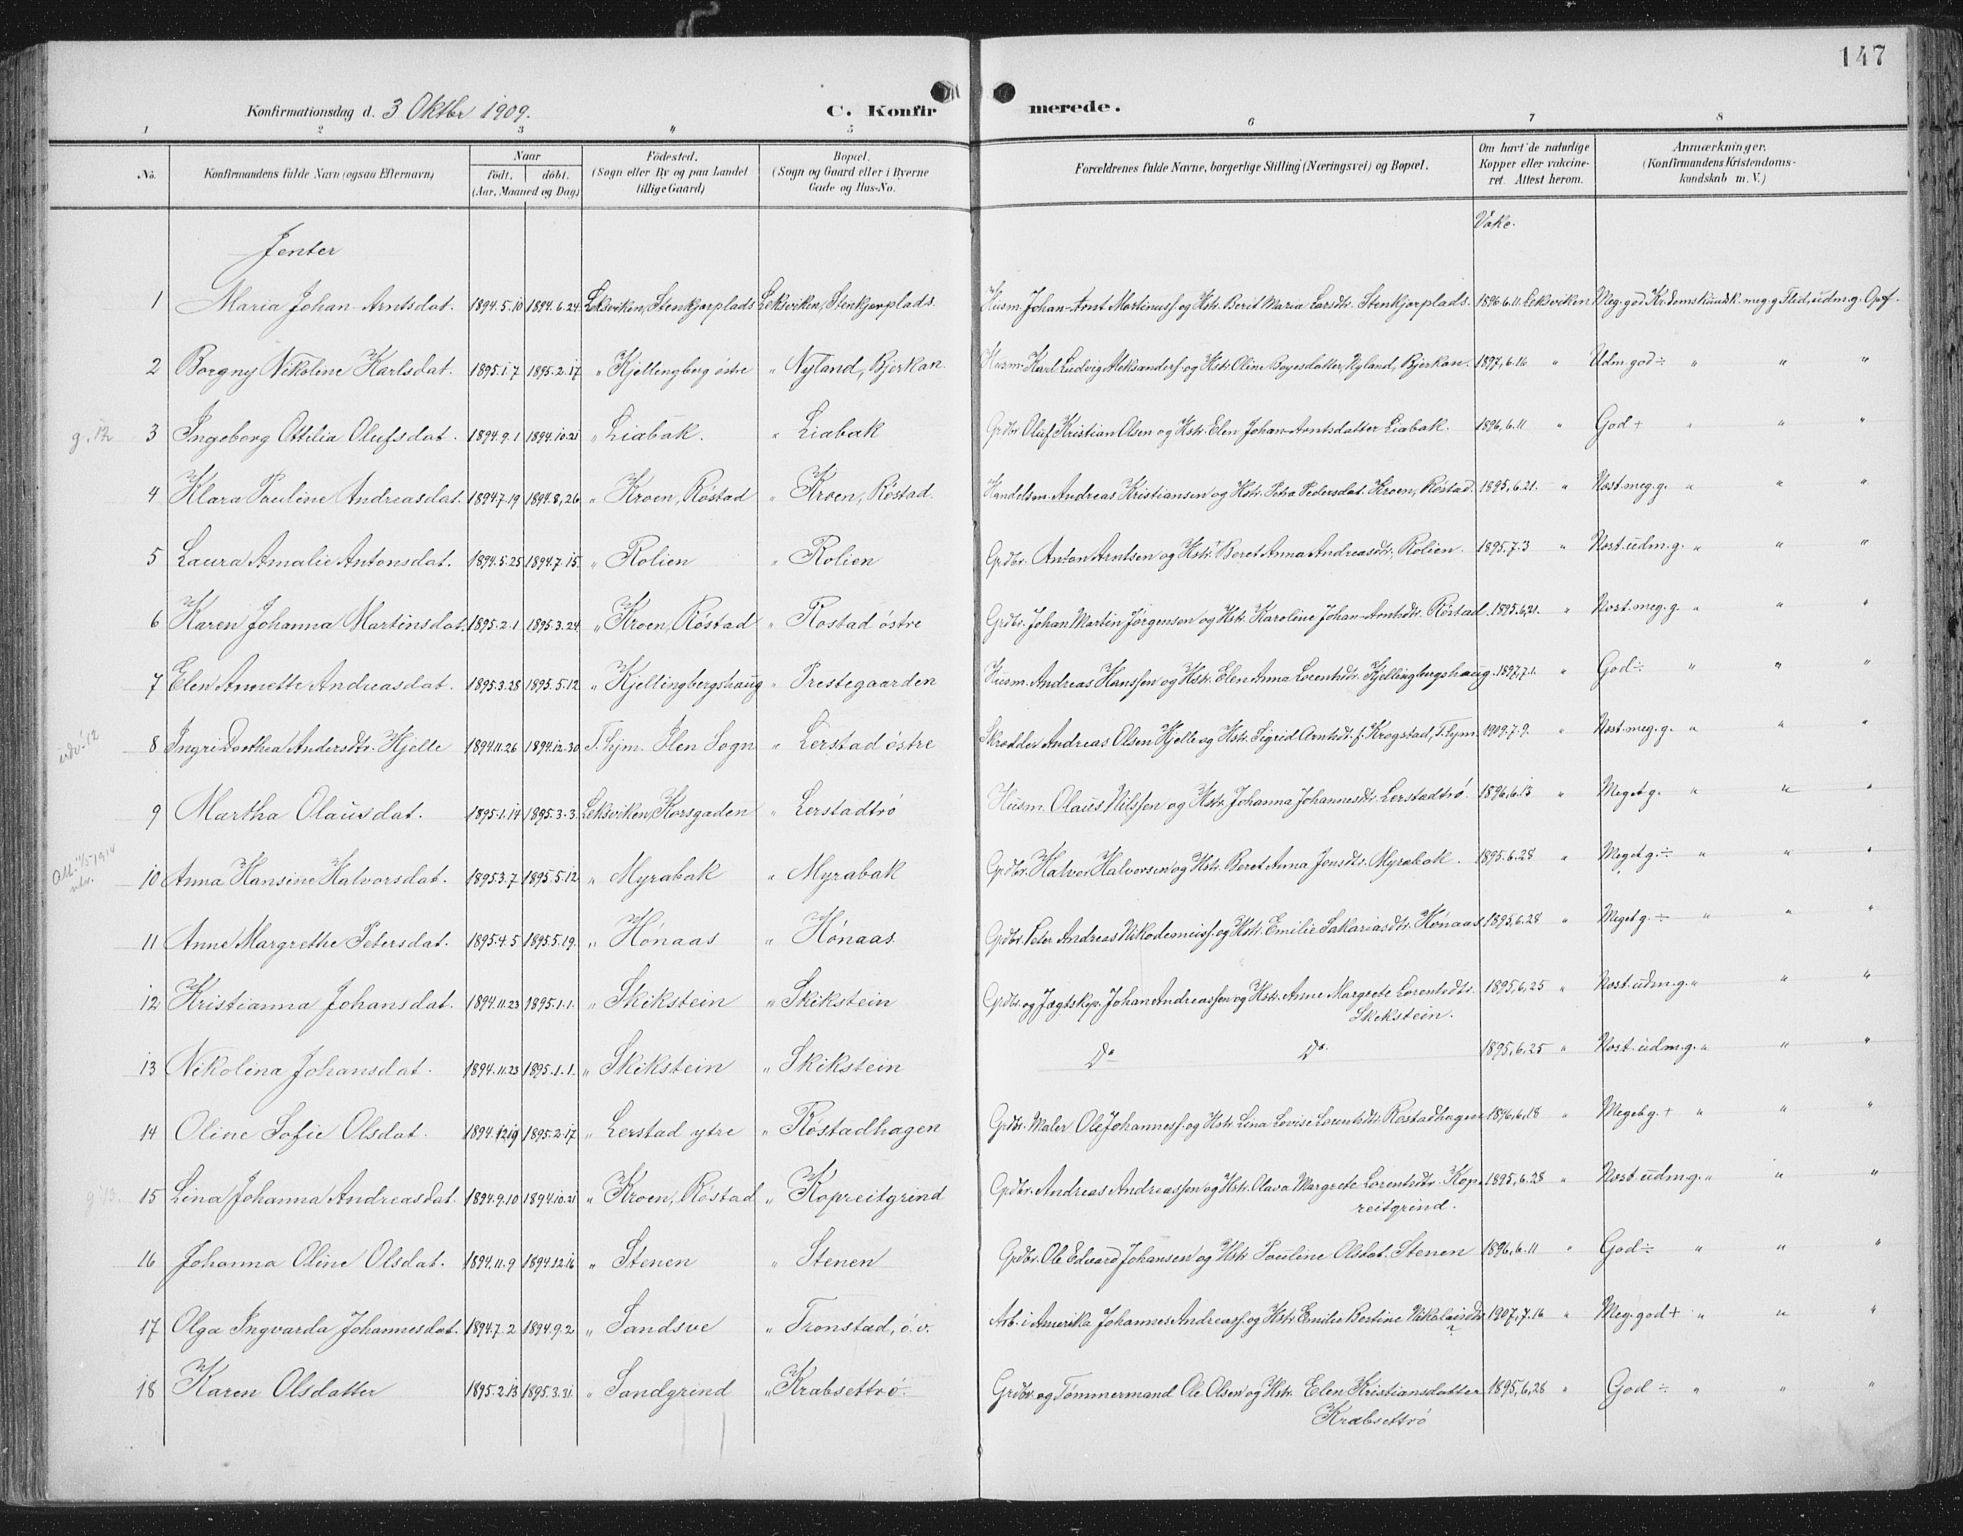 147
Konfirmationsdag d. 3 Oktbr 1909.
C. Konfir merede.
1 2 3 " 5 6 7 8
No. Konfirmandens fulde Navn (ogsaa Efternavn) Naar født. døbt. (Aar, Maaned og Dag) Fødested. (Sogn eller By og paa Landet tillige Gaard) Bopæl. (Sogn og Gaard eller i Byerne Gade og Hus-No. Forældrenes fulde Navne, borgerlige Stilling (Næringsvei) og Bopæl. Om havt de naturlige Kopper eller vakcineret. Attest herom. Anmærkninger. (Konfirmandens Kristendomskundskab m. V.)
Jenter Vakc.
1 Maria Johan-Arntsdat. 1894.5.10 1894.6.24 Leksviken, Stenkjorplads Leksviken, Stenkjorplads. Husm. Johan-Arnt Martinusf. og Hstr. Berit Maria Larsdtr. Stenkjorplads. 1896.6.11 Leksviken Meg. god Kr.domskundsk. meg. g. Flid, udm. g. Opf.
2 Borgny Nikoline Karlsdat. 1895.1.7 1895.2.17 " Kjellingberg östre " Nyland, Bjerkan. Husm. Karl Ludvig Aleksanders. og Hstr. Oline Boyesdatter, Nyland, Bjerkan. 1897,6.16 " Udm. god ÷ " " "
g. 12 3 Ingeborg Ottilia Olufsdat. 1894.9.1 1894.10.21 " Liabak. " Liabak Grdbr. Oluf Kristian Olsen og Hstr. Elen Johan-Arntsdatter Liabak. 1896,6.11 " God + " " "
4 Klara Pauline Andreasdat. 1894.7.19 1894.8,26 " Kroen, Röstad " Kroen, Röstad. Handelsm. Andreas Kristiansen og Hstr. Petra Pedersdat. Kroen, Röstad. 1895,6.21. " Næst. meg. g. " " "
5 Laura Amalie Antonsdat. 1894.5.25 1894.7.15. " Rolien " Rolien Grdbr. Anton Arntsen og Hstr. Beret Anna Andreasdtr, Rolien. 1895.7.3 " Næst. udm. g. " " "
6 Karen Johanna Martinsdat. 1895.2.1 1895.3.24 " Kroen, Röstad " Rostad östre Grdbr. Johan Martin Jørgensen og Hstr. Karoline Johan-Arntsdtr Röstad. 1895.6,21. " Næst. meg. g " " "
7 Elen Annette Andreasdat. 1895.3.28 1895.5.12 " Kjellingbergshaug " Prestegaarden Husm. Andreas Hansen og Hstr. Elen Anna Lorentsdtr. Kjellingbergshaug. 1897,7.1. " God ÷ " " "
12 8 Ingri Dorthea Andersdtr. Hjelle 1894.11.26 1894.12.30 T.hjm. Ilen Sogn " Lerstad östre Skrædder Andreas Olsen Hjelle og Hstr. Sigrid Arntsdt. f. Krogstad, T.hjm. 1909.7.9. " Næst. meg. g. " " "
9 Martha Olausdat. 1895.1.14 1895.3.3. Leksviken, Korsgaden " Lerstadtrö Husm. Olaus Nilssen og Hstr. Johanna Johannesdtr. Lerstadtrö. 1896,6.13 " Meget g. " " "
1914 10 Anna Hansine Halvorsdat. 1895.3.7 1895.5.12 " Myrabak " Myrabak Grdbr. Halvor Halvorsen og Hstr. Beret Anna Jonsdtr. Myrabak. 1895.6.28 " Meget g. ÷ " " "
11 Anne Margrethe Petersdat. 1895.4.5 1895.5.19. " Hönaas " Hönaas. Grdbr. Peter Andreas Nikodemusf. og Hstr. Emilie Sakariasdtr. Hönaas. 1895,6.28 " Meget g. ÷ " " "
12 Kristianna Johansdat. 1894.11.23 1895.1.1. " Skikstein " Skikstein Grdbr. og Jægtskip. Johan Andreassen og Hstr. Anne Margrete Lorentsdtr. 1895,6,25 " Næst. udm. g. " " "
Skikstein.
13 Nikolina Johansdat. 1894.11.23 1895.1.1. " Skikstein " Skikstein Do Do. 1895,6,25 " Næst. udm. g. " " "
14 Oline Sofie Olsdat. 1894.12.19 1895.2.17 " Lerstad ytre " Röstadhagen Grdbr. Maler Ole Johannesf. og Hstr. Lina Lovise Lorentsdtr. Rostadhagen 1896,6,18 " Meget g. + " " "
15 Lina Johanna Andreasdat. 1894.9.10 1894.10.21 " Kroen, Röstad " Kopreitgrind Grdbr. Andreas Andreassen og Hstr. Olava Margrete Lorentsdtr. Kop- 1895,6.28 " Næst. udm. g. " " "
reitgrind.
16 Johanna Oline Olsdat. 1894.11.9 1894.12.16 " Stenen " Stenen Grdbr. Ole Edvard Johansen og Hstr. Pauline Olsdat. Stenen 1896,6.11 " God ÷ " " "
17 Olga Ingvarda Johannesdat. 1894.7.2 1894.9.2. " Sandsve " Tronstad, ö.v. Arb. i Amerika Johannes Andreasf. og Hstr. Emilie Bertine Nikolaisdtr 1907,7.16 " Meg. god + " " "
18 Karen Olsdatter 1895.2.13 1895.3.31. " Sandgrind " Krabsettrö. Grdbr. og Tömmermand Ole Olsen og Hstr. Elen Kristiansdatter 1895,6,28 " God ÷ " " "
Krabsettrö